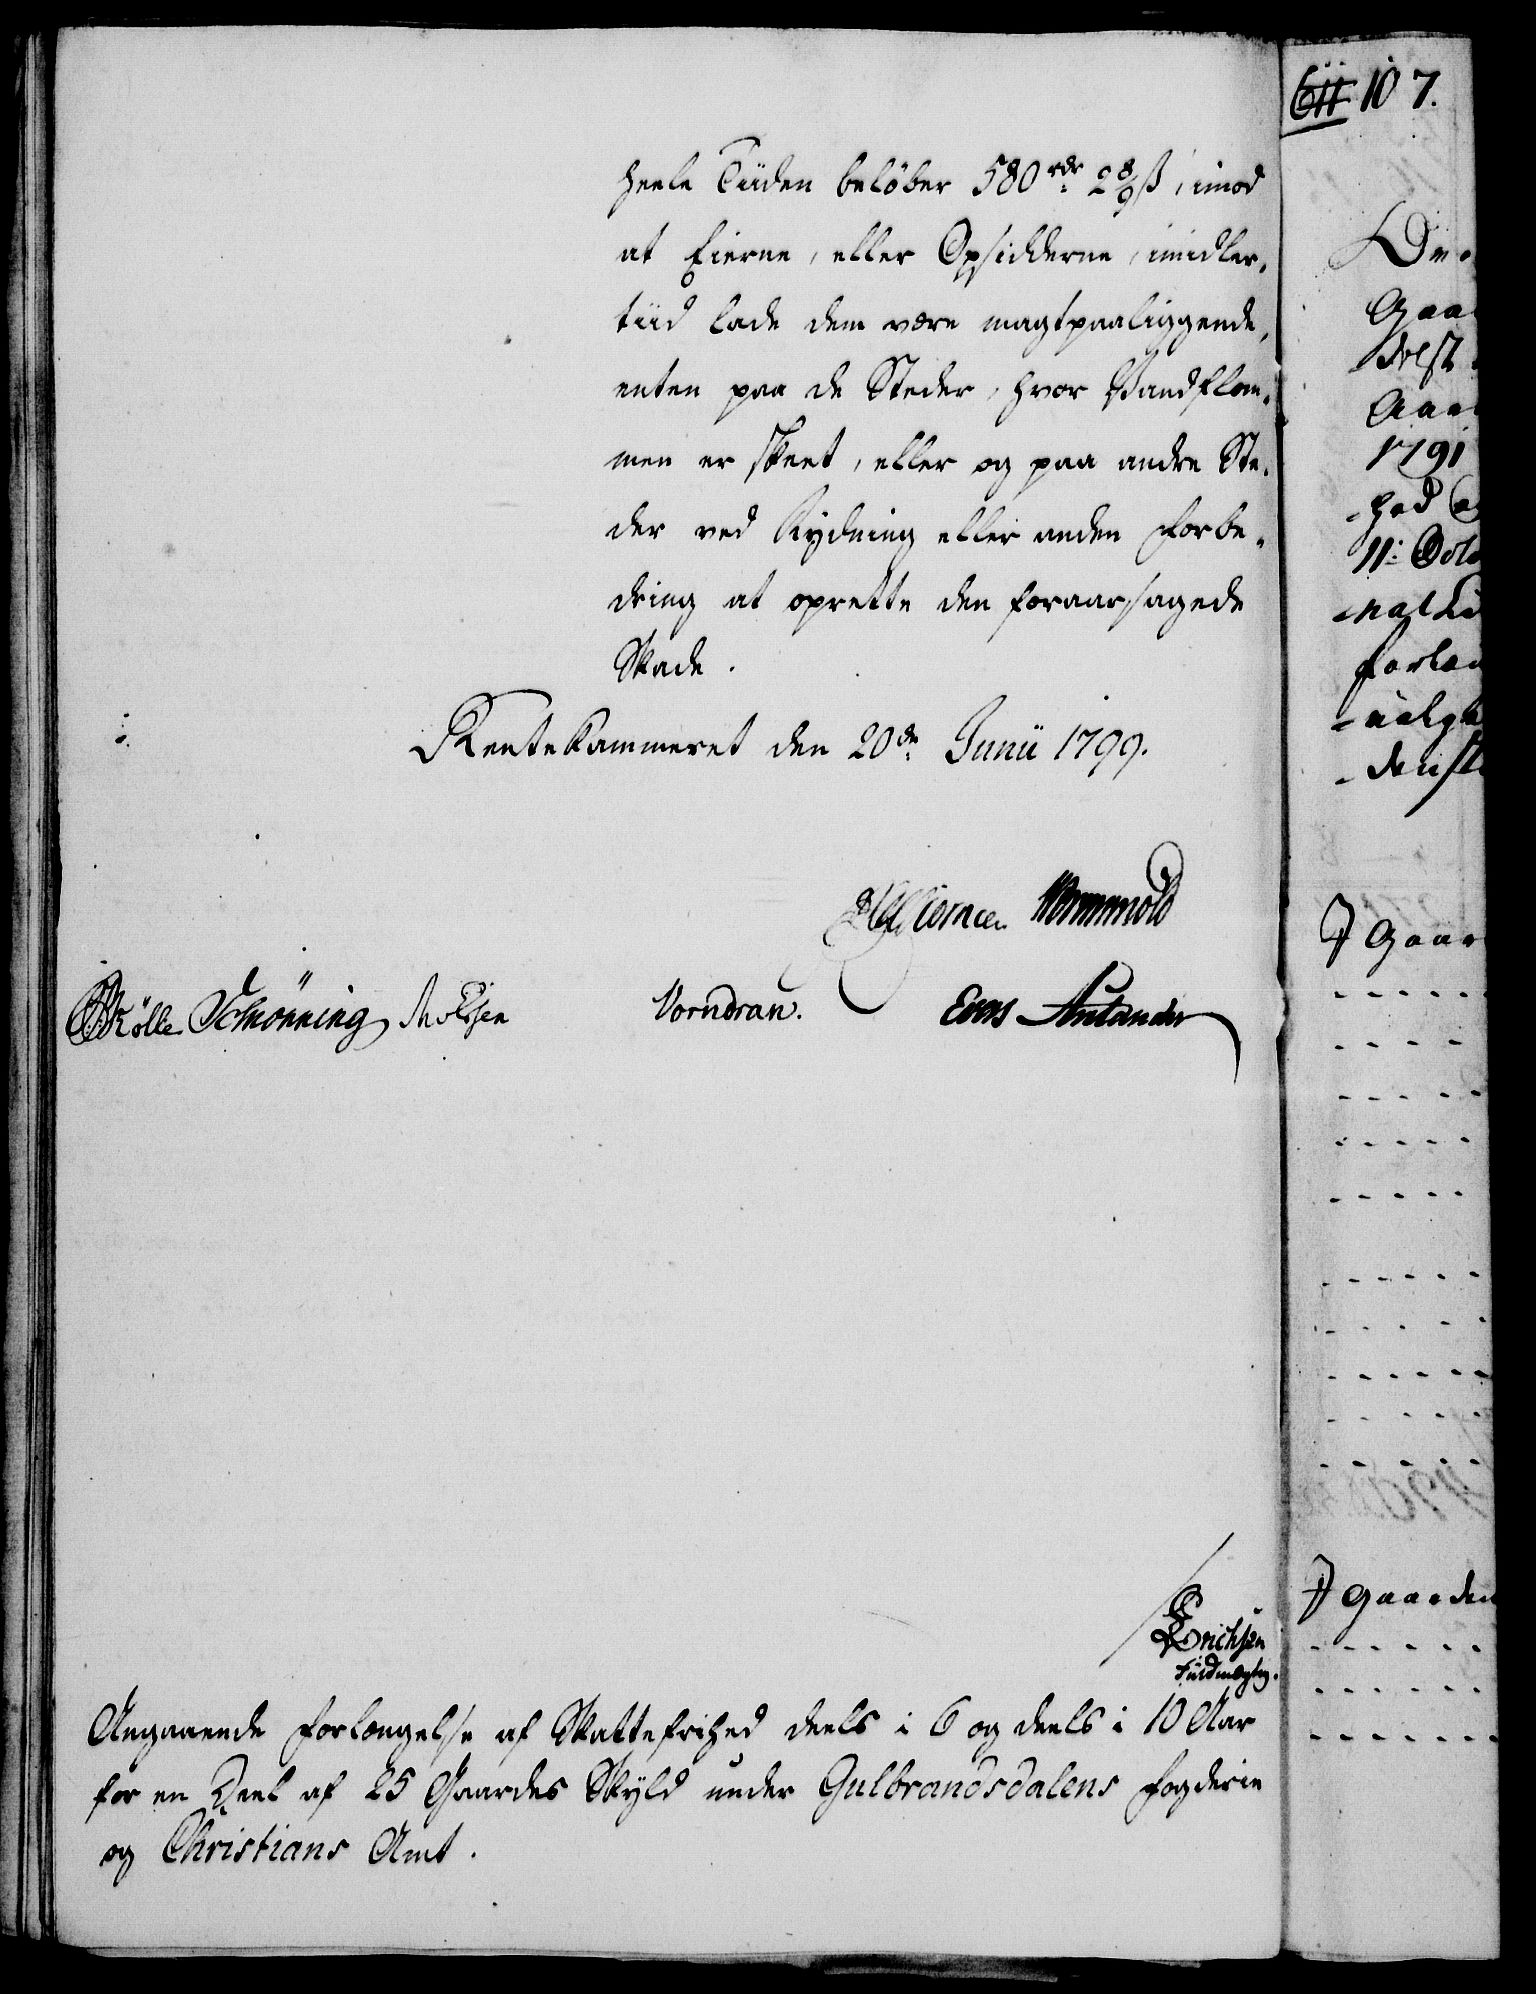 heele Tiiden beløber 580 rdr 2 8/9 ß, imod
at Eierne, eller Opsidderne, imidler-
tiid lade dem være magtpaaliggende,
enten paa de Steder, hvor Vandflom-
men er skeet, eller og paa andre Ste-
der ved Rydning eller anden Forbe-
dring at oprette den foraarsagede
Skade.
Rentekammeret den 20de Junii 1799.
Wormskiold
Schiønning Vorndran. Evers
Erichsen
Fuldmægtig.
Angaaende Forlængelse af Skattefrihed deels i 6 og deels i 10 Aar
for en Deel af 25 Gaardes Skyld under Gulbrandsdalens Fogderie
og Christians Amt.
107.
Gaa
Aar
1791
hed
11:
forlæn
Gaar
Gaarden